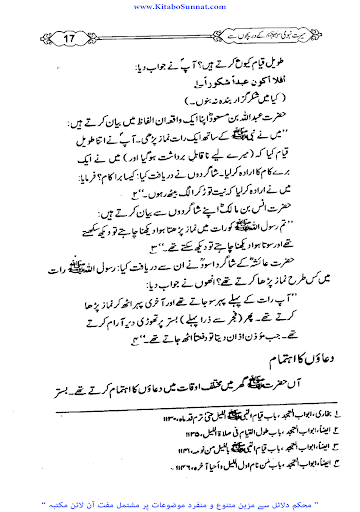 www.KitaboSunnat.com
17
سیرت نبوی ﷺ کے دریچوں سے
طویل قیام کیوں کرتے ہیں؟ آپؐ نے جواب دیا:
أفلا أکون عبداً شکوراً۔ ۱
(کیا میں شکر گزار بندہ نہ بنوں۔)
حضرت عبداللہ بن مسعودؓ اپنا ایک واقعہ ان الفاظ میں بیان کرتے ہیں:
’’میں نے نبی ﷺ کے ساتھ ایک رات نماز پڑھی۔ آپؐ نے اتنا طویل
قیام کیا کہ (میرے لیے ناقابل برداشت ہوگیا اور) میں نے ایک
برے کام کا ارادہ کرلیا۔ شاگردوں نے دریافت کیا: کیسا برا کام؟ فرمایا:
میں نے ارادہ کرلیا کہ نیت توڑ کر الگ بیٹھ رہوں۔‘‘ ۲
حضرت انس بن مالکؓ اپنے شاگردوں سے بیان کرتے ہیں:
’’تم رسول اللہ ﷺ کو رات میں نماز پڑھتا ہوا دیکھنا چاہتے تو دیکھ سکتے
تھے اور سوتا ہوا دیکھنا چاہتے تو دیکھ سکتے تھے۔‘‘ ۳
حضرت عائشہؓ کے شاگرد اسودؒ نے ان سے دریافت کیا: رسول اللہ ﷺ رات
میں کس طرح نماز پڑھا کرتے تھے؟ انھوں نے جواب دیا:
’’آپ رات کے پہلے پہر سوجاتے تھے اور آخری پہر اٹھ کر نماز پڑھا
کرتے تھے۔ پھر (فجر سے ذرا پہلے) بستر پر تھوڑی دیر آرام کرتے
تھے۔ جب مؤذن اذان دیتا تو دفعتاً اٹھ جاتے تھے۔‘‘ ۴
دعاؤں کا اہتمام
آں حضرت ﷺ گھر میں مختلف اوقات میں دعاؤں کا اہتمام کرتے تھے۔ بستر
۱ بخاری، ابواب التہجد، باب قیام النبی ﷺ اللیل حتی ترم قدماہ، ۱۱۳۰
۲ ایضاً، ابواب التہجد، باب طول القیام فی صلاۃ اللیل، ۱۱۳۵
۳ ایضاً، ابواب التہجد، باب قیام النبی ﷺ باللیل من نومہ، ۱۱۴۱
۴ ایضاً، ابواب التہجد، باب من نام اول اللیل و أحیا آخرہ، ۱۱۴۶
" محکم دلائل سے مزین متنوع و منفرد موضوعات پر مشتمل مفت آن لائن مکتبہ "